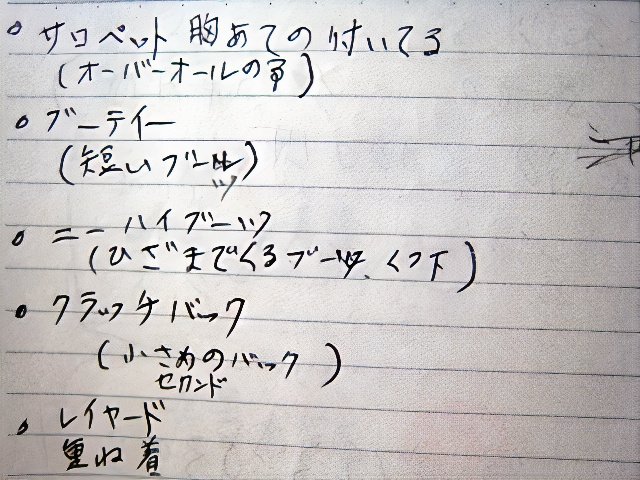 。サロペット 胸あての付いてる
(オーバーオールの事)
。ブーティー
(短いブーツ)
。ニーハイブーツ
(ひざまでくるブーツ、くつ下)
・クラッチバック
(小さめのバック)
セカンド
・レイヤード
重ね着